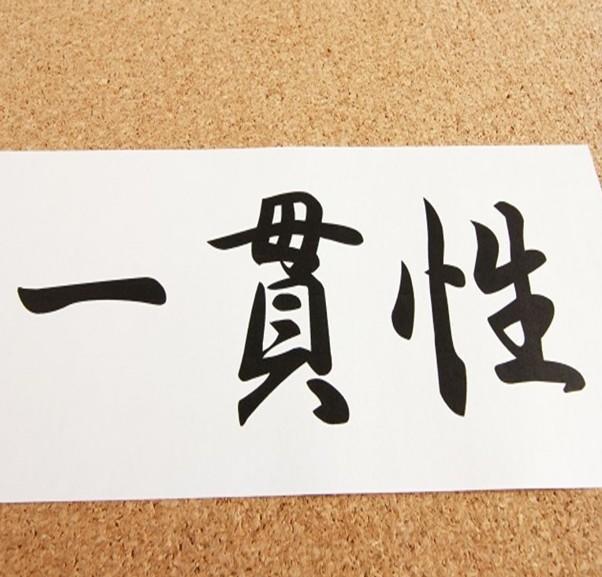 一貫性